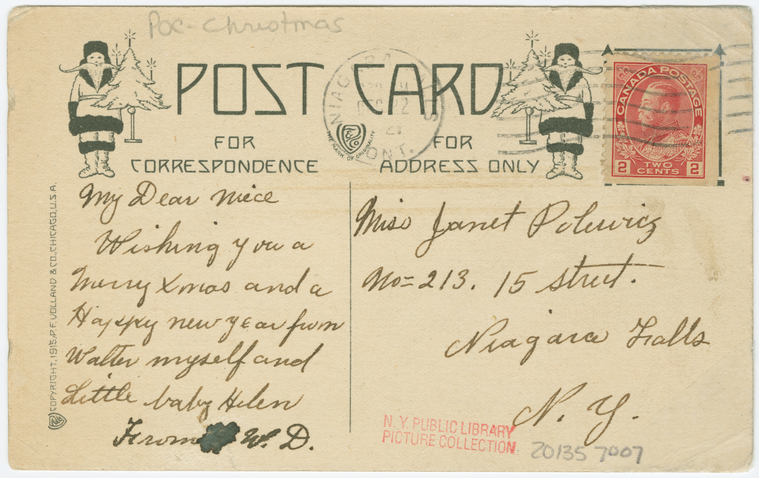 Poc-Christmas
POST CARD
FOR CORRESPONDENCE
FOR ADDRESS ONLY
NIAGARA FALLS
ONT.
CANADA POSTAGE
2 TWO CENTS 2
My Dear niece
Wishing you a
Merry Xmas and a
Happy new year from
Walter myself and
Little baby Helen
From W. D.
Miss Janet
No= 213. 15 street.
Niagara Falls
N. Y.
COPYRIGHT, 1915, P.F. VOLLAND & CO. CHICAGO, U.S.A.
N.Y. PUBLIC LIBRARY
PICTURE COLLECTION
20135 7007